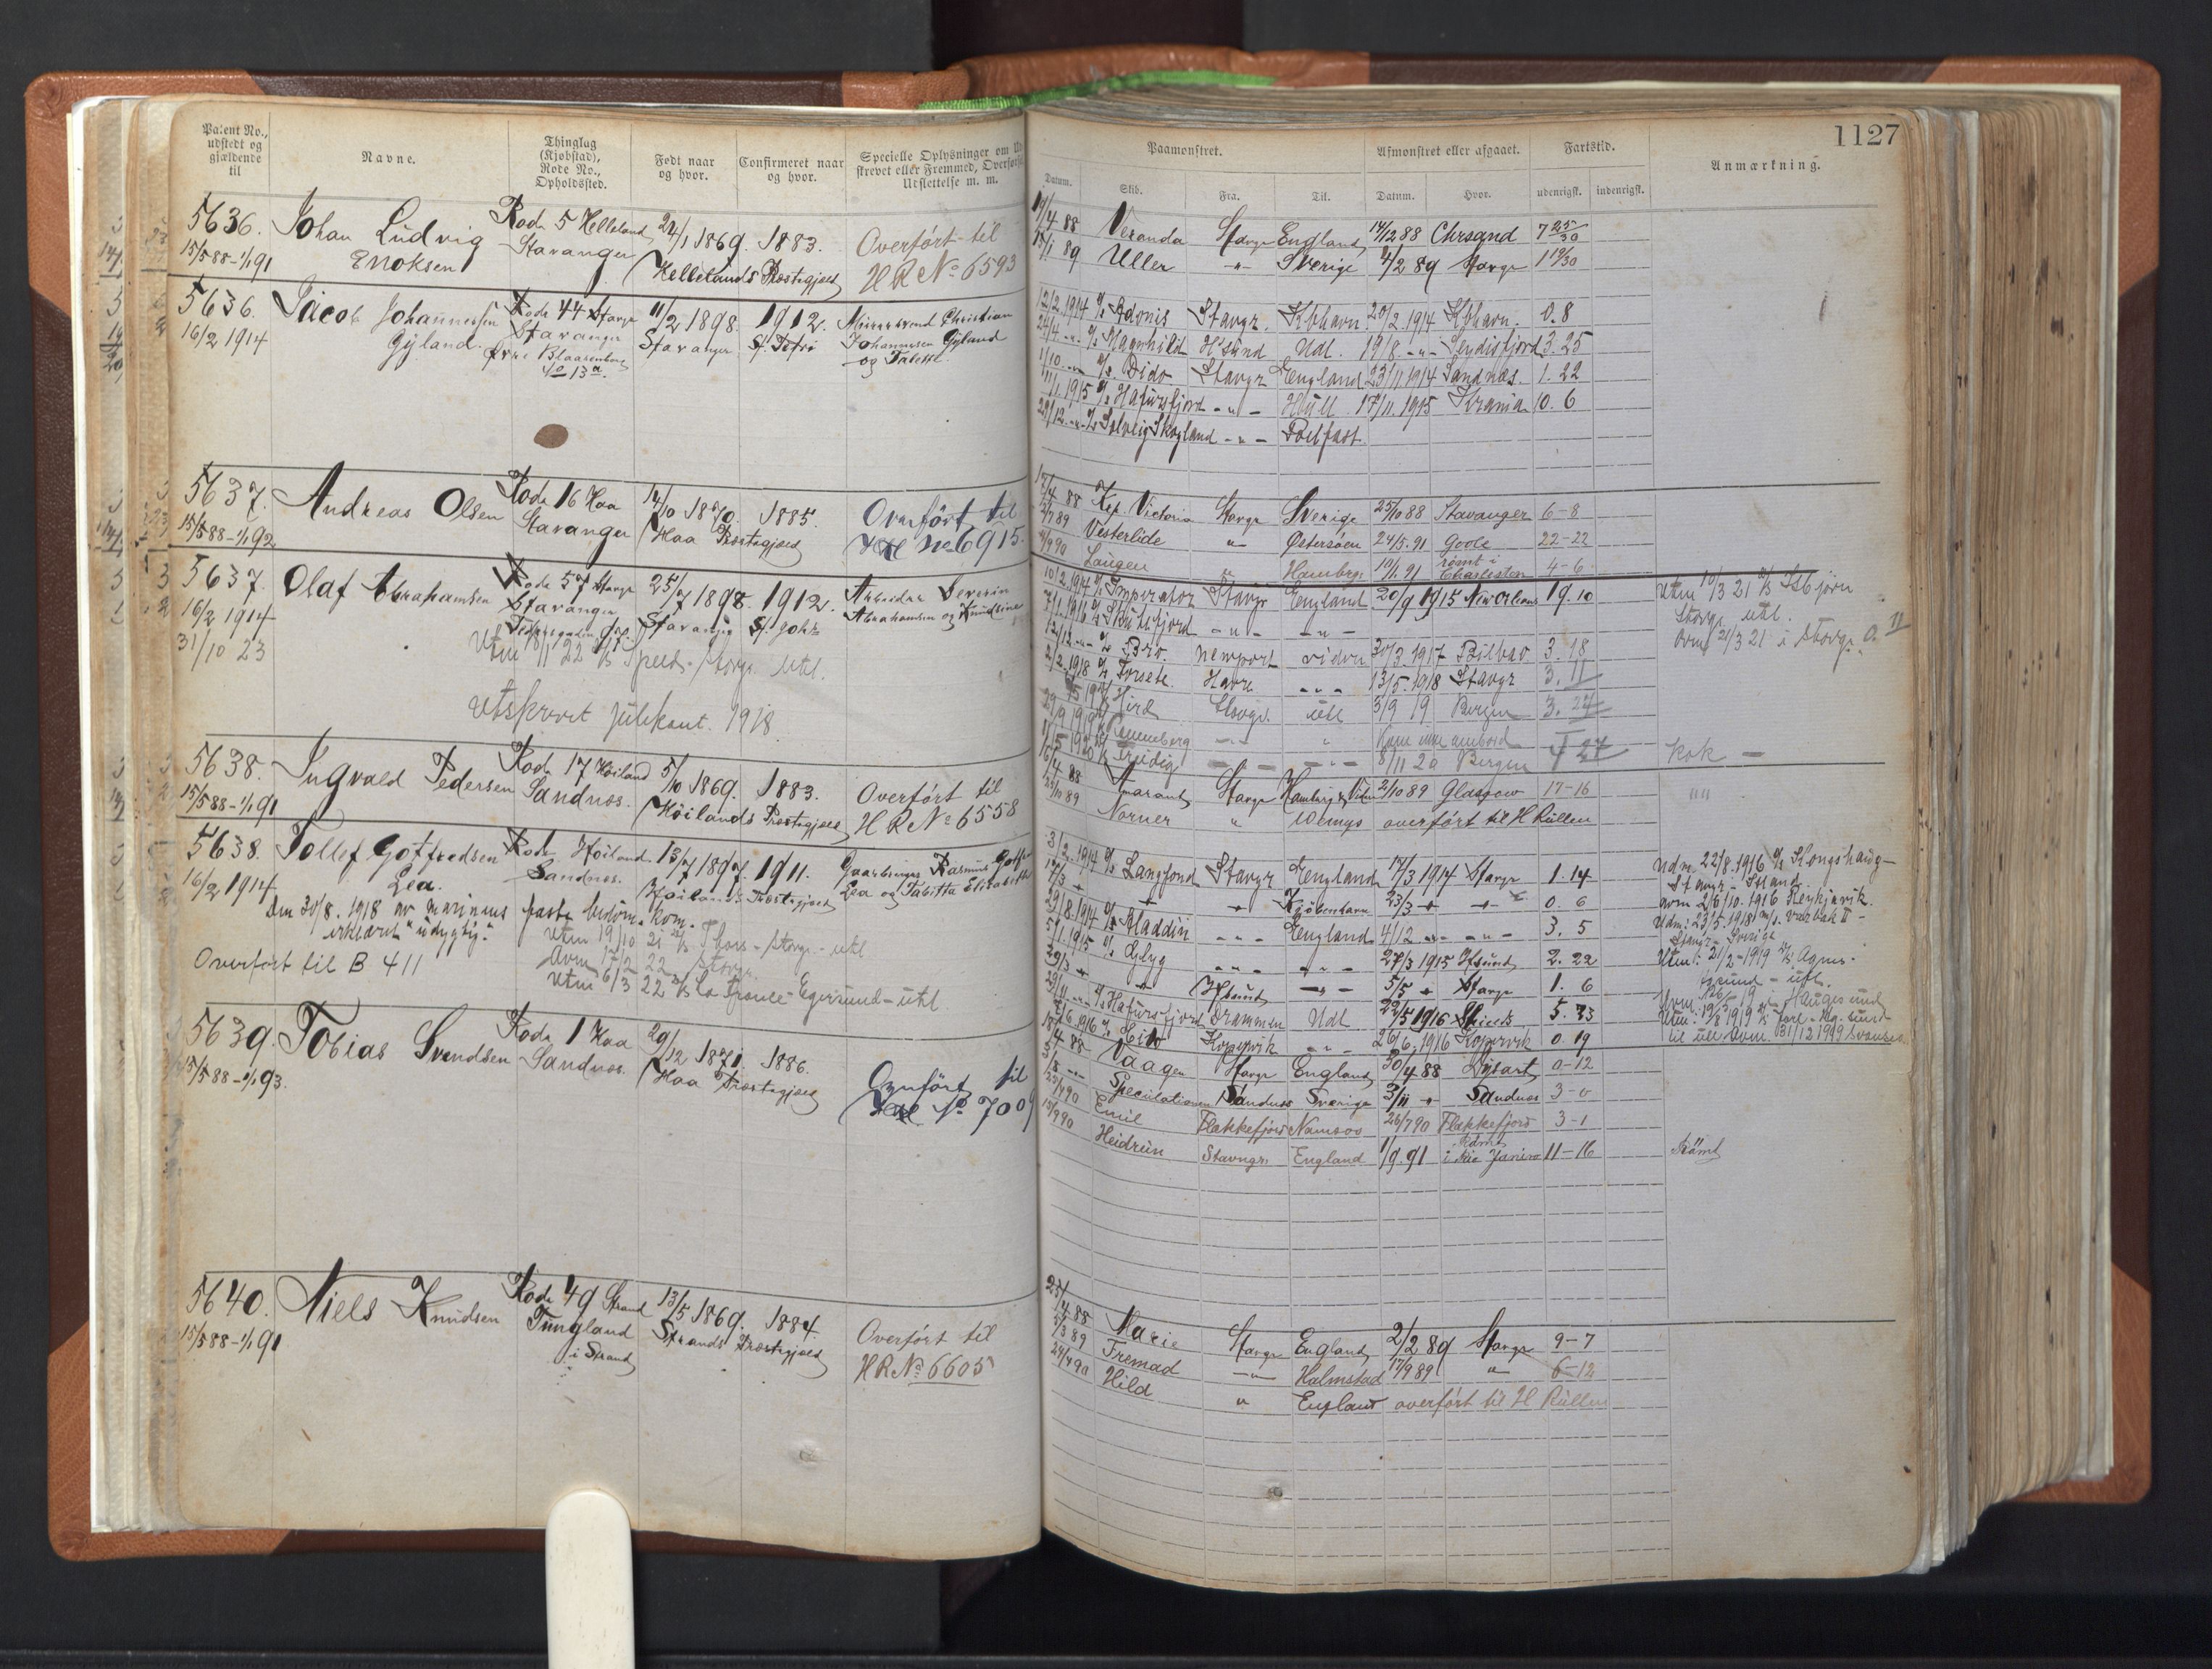 1127
Patent No., udstedt og gjældende til
Navne.
Thinglag (Kjøbstad), Rode No., Opholdssted.
Født naar og hvor.
Confirmeret naar og hvor.
Specielle Oplysninger om
skrevet eller Fremmed,
Udslettelse m. m.
Paamønstret.
Afmønstret eller afgaaet.
Fartstid.
Anmærkning.
Datum.
Skib.
Fra.
Til.
Datum.
Hvor.
udenrigsk.
indenrigsk.
5636. Johan Ludvig Rode 5 Helleland 24/1 1869. 1883. Overført til
15/5 88-1/1 91 Enoksen Stavanger Hellelands Præstegjæld H R No 6593
14/4 88 Veranda Stavgr England 14/12 88 Chrsand 7 25/30
89 Uller -"- Sverige 4/2 89 Stavgr 1
5636. Jacob Johannessen Rode 44 Stavgr 11/2 1898. 1912. Murersvend Christian
16/2 1914 Gyland. Stavanger Stavanger St. Petri Johannesen Gyland
Øvre Blaasenborg og Tabitta
No 13 a.
12/2. 1914 Adonis Stavgr. Kbhavn 20/2. 1914 Kbhavn. 0. 8
24/4 -"- Ragnhild H'sund Udl. 19/8. -"- Seydisfjord 3. 25
1/10 -"- Dido Stavgr England 23/11 1914 Sandnæs. 1. 22
11/1. 1915 Hafursfjord -"- Hull 17/11. 1915 Krania 10. 6
29/12. -"- Solveig Skogland -"- Belfast
5637. Andreas Olsen Rode 16 Haa 14/10 1870. 1885. Overført til
15/5 88-1/1 92 Stavanger Haa Præstegjæld No 6915.
17/4 88 Victoria Stavgr Sverige 25/10 88 Stavanger 6-8
89 Vesterlide " Østersøen 24/5. 91 Goole 22-22
90 Laugen " Hamburg 10/1. 91 rømt i Charleston 4-6
5637. Olaf Abrahamsen Rode 57 Stavgr 25/7 1898. 1912. Arbeider Severin
16/2 1914 Stavanger Stavanger St. Johs Abrahamsen og Knudine
31/10 23
Utm 18/11 22 Speed - Stavgr utl.
Utskrevet julekant. 1918
10/2. 1914 Imperator Stavgr England 20/9 1915 New Orleans 19. 10
7/1. 1916 -"- -"-
12/12 -"- Bro. Newport vidre 30/3. 1917 Bilbao 3. 18
2/2. 1918 Forsete Havre -"- 13/5. 1918 Stavgr 3. 11
Hird Stavgr. utl 3/9 19 Bergen 3. 24
Kom ikke ombord
Fridig -"- 8/11 20 Bergen
Utm 10/3 21 Isbjørn
Stavgr utl.
avm 21/3 21 i Stavgr. 0. 11
Kok -
5638. Ingvald Pedersen Rode 17 Høiland 5/10 1869. 1883. Overført til
15/5 88-1/1 91 Sandnæs. Høilands Præstegjæld H R No 6558
16/4 88 Amarant Stavgr Hamburg & Vidre 2/10 89 Glasgow 17-16
25/10 89 Norner " Wemys overført til H Rullen
5638. Tollef Gotfredsen Rode Høiland 13/7 1897. 1911. Gaardbruger Rasmus
16/2 1914. Lea. Sandnæs. Høilands Præstegjæld Lea og Tabitta Elisabeth
Den 30/8. 1918 av marinens faste bedøm. kom.
erklæret "udygtig."
Utm 19/10 21 Thors - Stavgr - utl
Overført til B 411 Avm 17/2 22 Stavgr.
Utm 6/3 22 La France - Egersund - utl
3/2. 1914 Langfond Stavgr England 17/3 1914 Stavgr 1. 14
17/3 Kjøbenhavn 23/3 0. 6
29/8. 1914 Aladdin -"- England 4/12 -"- -"- 3. 5
5/1. 1915 Glyg -"- -"- 27/3 1915 Hsund 2. 22
29/3 Hsund -"- 5/5 Stavgr 1. 6
29/11 -"- Hafursfjord Drammen Udl 22/5 1916 Shields 5. 23
2/6. 1916 Kopervik -"- 26/6. 1916 Kopervik 0. 19
Udm. 22/8. 1916 Kongshaug -
Stavgr - Island
avm 26/10. 1916 Reykjavik.
Udm: 23/5. 1918 Varbak II -
Stavgr - Sverige
Utm: 21/2 - 1919 Agnes -
Hsund - utl.
Haugesund
til utl Avm. 31/12 1919 Svansea
5639. Tobias Svendsen Rode 1 Haa 29/12 1871. 1886.
15/5 88-1/1 93. Sandnæs. Haa Præstegjæld Overført til
No 7009
18/4 88 Vaagen Stavgr England 30/4 88 Dysart 0-12
Speculationen Sandnæs Sverige 3/11 Sandnæs 3-0
90 Emil Flekkefjord Namsos 26/7 90 Flekkefjord 3-1
90 Heidrun Stavngr. England 1/9. 91 Rømt i Rio Janeiro 11-16 Rømt
5640. Niels Knudsen Rode 49 Strand 13/5 1869. 1884. Overført til
15/5 88-1/1 91 Tungland Strands Præstegjæld H R No 6605
i Strand
25/4 88 Marie Stavgr England 2/2 89 Stavgr 9-7
89 Fremad -"- Halmstad 17/9 89 " 6-12
24/4 90 Hild " England overført til H Rullen